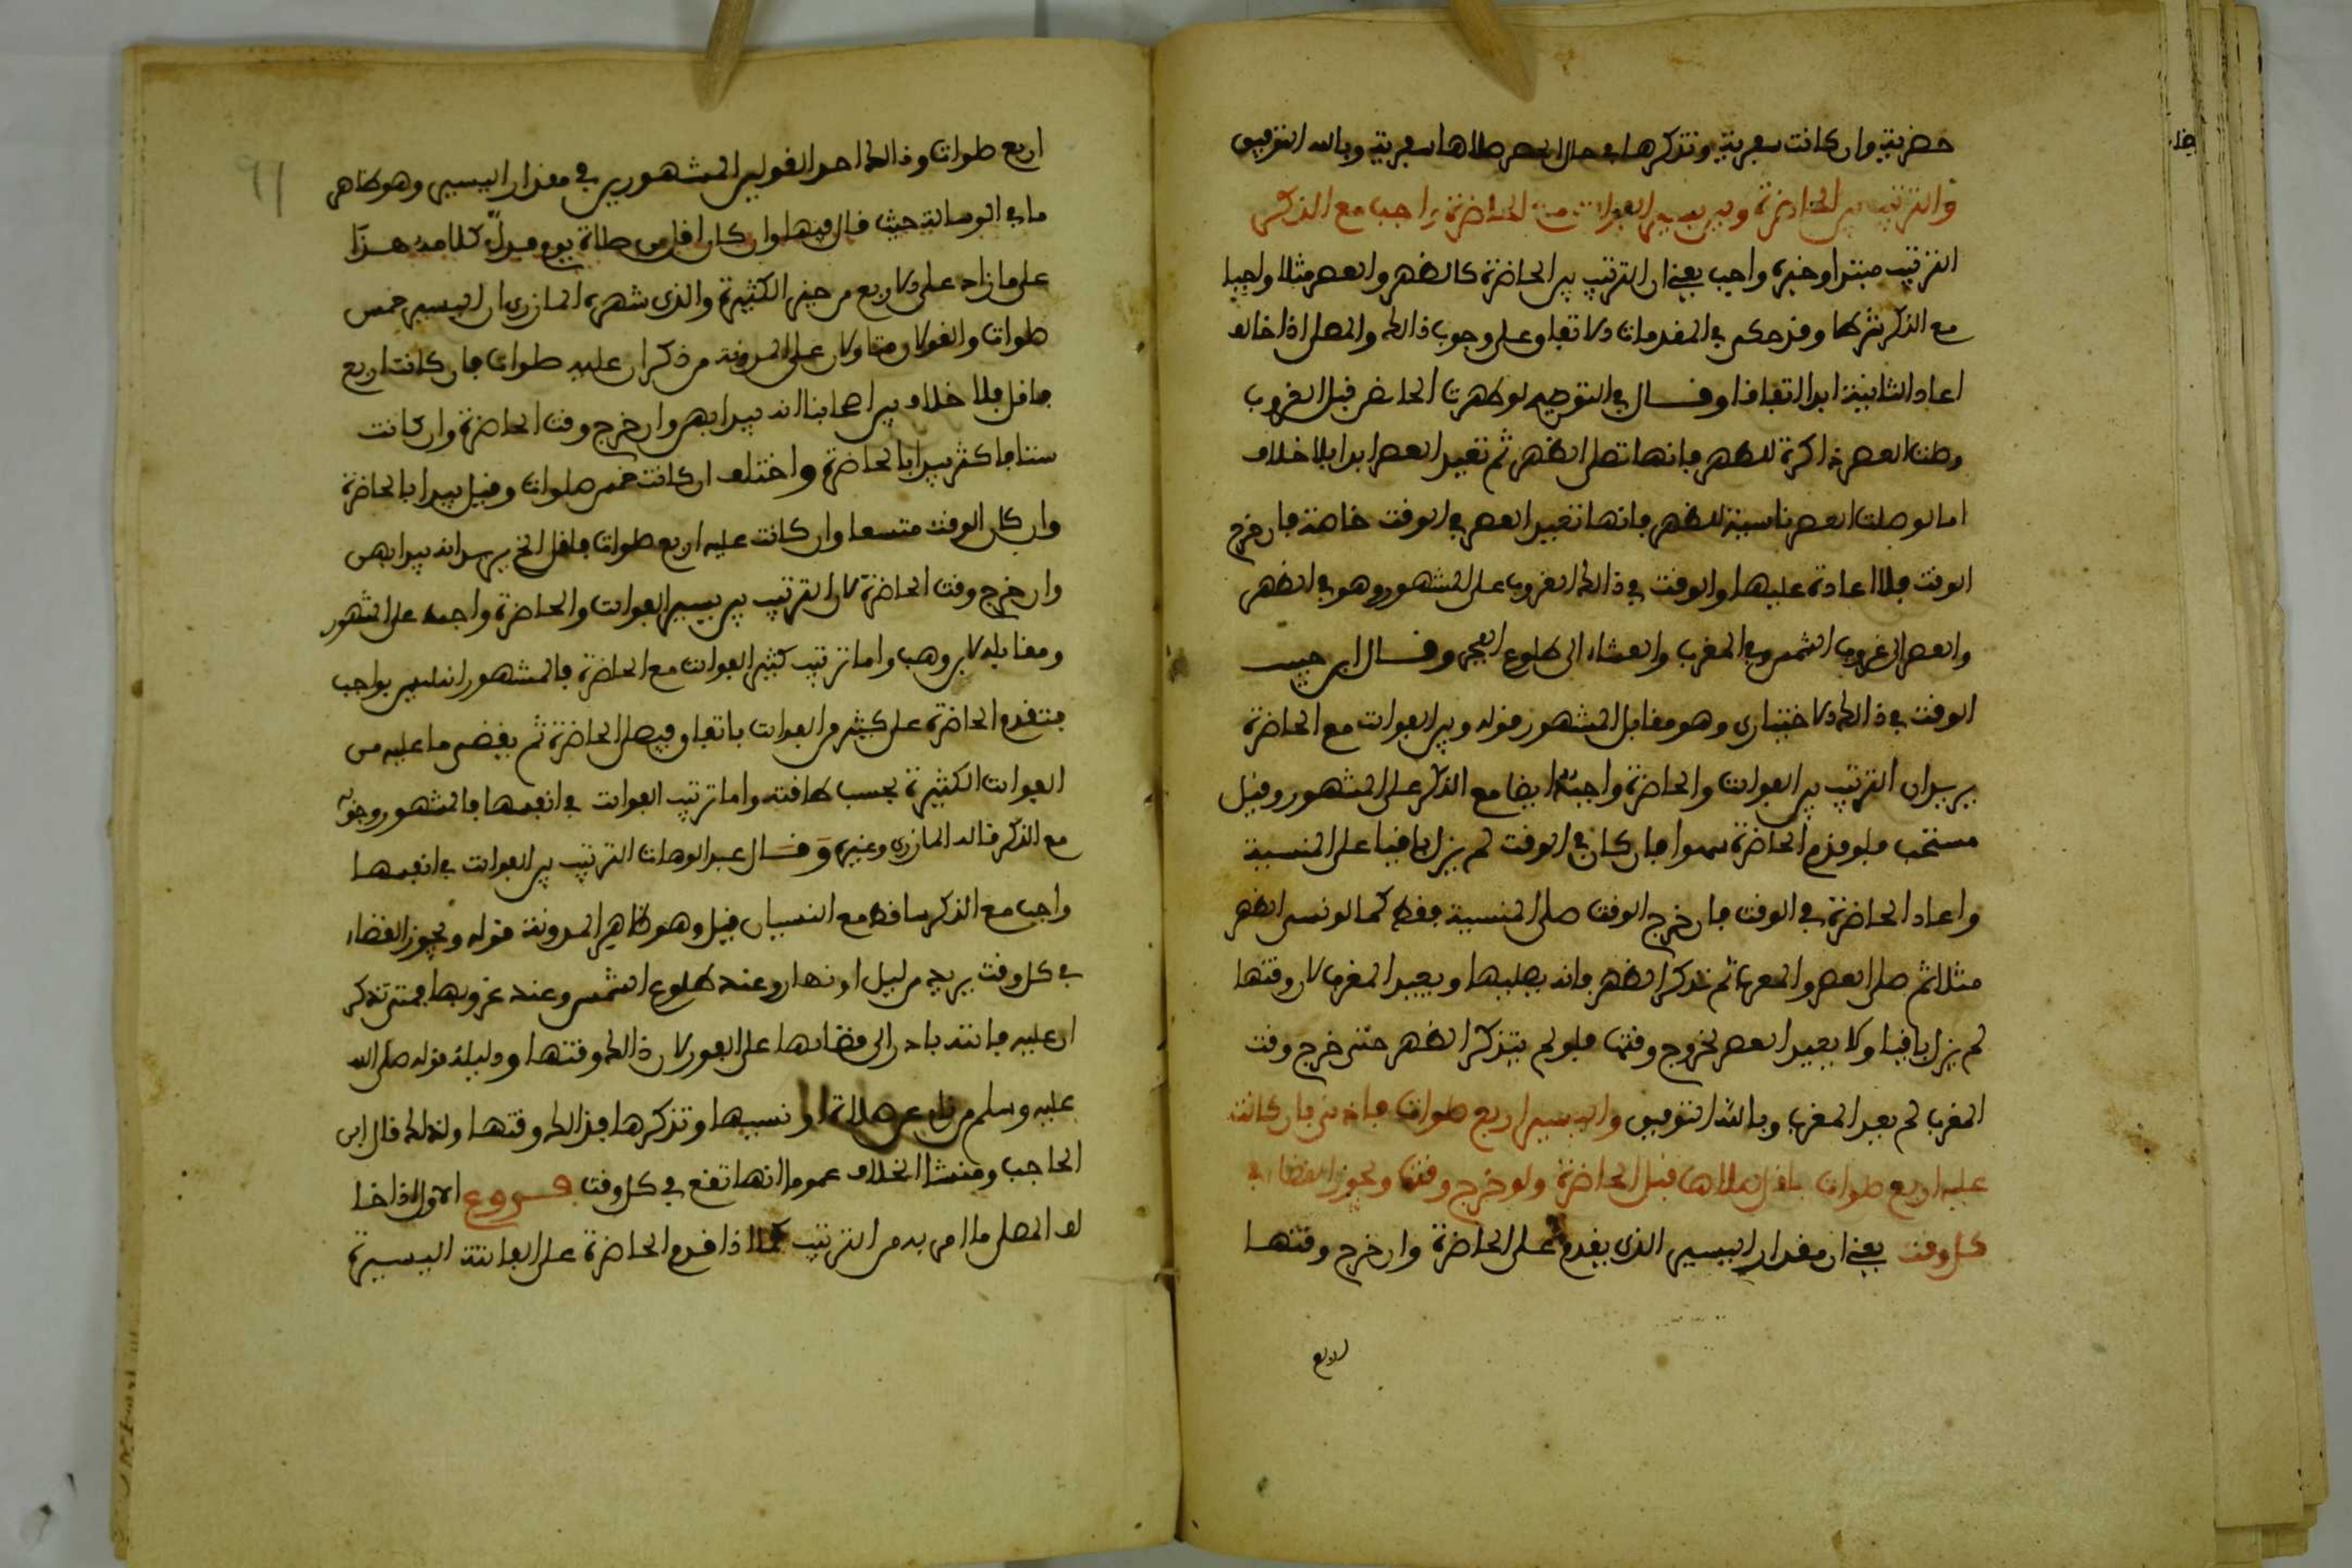 حضرية وان كانت سفرية وتذكرها في حال الحضر صلاها سفرية وبالله التوفيق
والترتيب بين الحاضرة وبين يسير الفوائت مع الحاضرة واجب مع الذكر
الترتيب مبتدا وخبره واجب يعني ان الترتيب بين الحاضرة كالظهر والعصر مثلا واجبا
مع الذكر شرطا وقد حكى في المقدمات الاتفاق على وجوب ذالك والمصلي اذا خالف
اعاد الثانية ابدا اتفاقا وقال في التوضيح لو طهرت الحائض قبل الغروب
وصلت العصر ذاكرة للظهر فانها تصلي الظهر ثم تعيد العصر ابدا بلا خلاف
اما لو صلت العصر ناسية للظهر فانها تعيد العصر في الوقت خاصة فان خرج
الوقت فلا اعادة عليها والوقت في ذالك الغروب على المشهور وهو في الظهر
والعصر الى غروب الشمس وفي المغرب والعشاء الى طلوع الفجر وقال ابن حبيب
الوقت في ذالك الاختياري وهو مقابل المشهور قوله وبين الفوائت مع الحاضرة
يريد ان الترتيب بين الفوائت والحاضرة واجب ايضا مع الذكر على المشهور وقيل
مستحب فلو قدم الحاضرة سهوا فان كان في الوقت لم يزل باقيا صلى المنسية
واعاد الحاضرة في الوقت فان خرج الوقت صلى المنسية فقط كما لو نسي الظهر
مثلا ثم صلى العصر والمغرب ثم تذكر الظهر فانه يصليها ويعيد المغرب لان وقتها
لم يزل باقيا ولا يعيد العصر لخروج وقتها فلو لم يتذكر الظهر حتى خرج وقت
المغرب لم يعد المغرب وبالله التوفيق واليسير اربع صلوات فادنى فان كانت
عليه اربع صلوات فاقل صلاها قبل الحاضرة ولو خرج وقتها ويجوز القضاء في
كل وقت يعني ان مقدار اليسير الذي يقدم على الحاضرة وان خرج وقتها
اربع
91
اربع صلوات وذالك احد القولين المشهورين في مقدار اليسير وهو ظاهر
ما في الرسالة حيث قال فيها وان كان اقل من صلاة يوم فدل كلامه هذا
على ما زاد على الاربع من حيز الكثيرة والذي شهره المازري ان اليسير خمس
صلوات والقولان متاولان على المدونة من ذكر ان عليه صلوات فان كانت اربع
فاقل فلا خلاف بين اصحابنا انه يبدا بهن وان خرج وقت الحاضرة وان كانت
ستا فاكثر يبدا بالحاضرة واختلف ان كانت خمس صلوات وقيل يبدا بالحاضرة
وان كان الوقت متسعا وان كانت عليه اربع صلوات فاقل الخ يريد انه يبدا بهن
وان خرج وقت الحاضرة لان الترتيب بين يسير الفوائت والحاضرة واجب على المشهور
ومقابله لابن وهب واما ترتيب كثير الفوائت مع الحاضرة فالمشهور انه ليس بواجب
فتقدم الحاضرة على كثير من الفوائت باتفاق فيصلي الحاضرة ثم يقضي ما عليه من
الفوائت الكثيرة بحسب طاقته واما ترتيب الفوائت في انفسها فالمشهور وجوبه
مع الذكر قاله المازري وغيره وقال عبد الوهاب الترتيب بين الفوائت في انفسها
واجب مع الذكر ساقط مع النسيان قيل وهو ظاهر المدونة قوله ويجوز القضاء
في كل وقت يريد من ليل او نهار وعند طلوع الشمس وعند غروبها فمتى تذكر
ان عليه فائتة بادر الى قضائها على الفور لان ذالك وقتها ودليله قوله صلى الله
عليه وسلم من نام عن صلاة او نسيها وتذكرها فذالك وقتها ولذلك قال ابن
الحاجب ومنشا الخلاف عموما انها تقع في كل وقت فروع الاول اذا خا
لف المصلي ما امر به من الترتيب كما اذا قدم الحاضرة على الفائتة اليسيرة